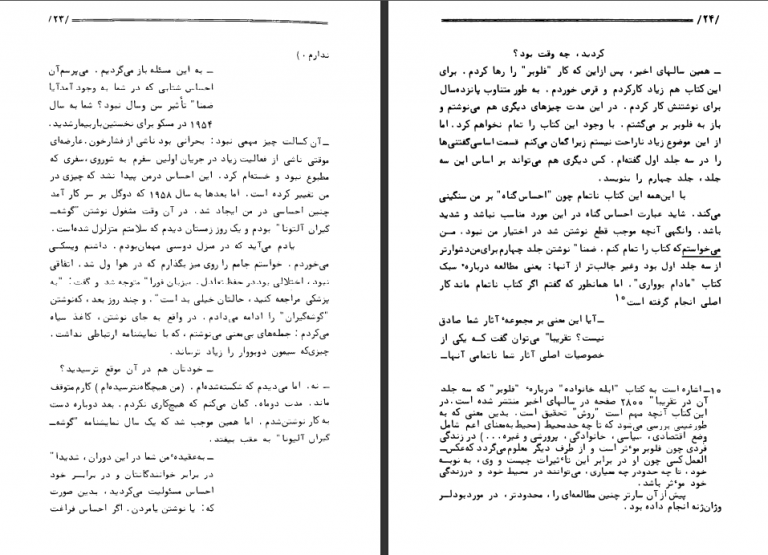 /۲۳/
ندارم.)
ــ به این مسئله باز می‌گردیم. می‌پرسم‌آن
احساس شتابی که در شما به وجود آمدآیا
ضمنا" تأثیر سن وسال نبود؟ شما به سال
۱۹۵۴ در مسکو برای نخستین‌باربیمارشدید.
ــ آن کسالت چیز مهمی نبود: بحرانی بود ناشی از فشارخون. عارضه‌ای
موقتی ناشی از فعالیت زیاد در جریان اولین سفرم به شوروی، سفری که
مطبوع نبود و خسته‌ام کرد. این احساس درمن پیدا نشد که چیزی در
من تغییر کرده است. اما بعدها به سال ۱۹۵۸ که دوگل بر سر کار آمد
چنین احساسی در من ایجاد شد. در آن وقت مشغول نوشتن "گوشه‌
گیران آلتونا" بودم و یک روز زمستان دیدم که سلامتم متزلزل شده‌است.
یادم می‌آید که در منزل دوستی مهمان‌بودم. داشتم ویسکی
می‌خوردم. خواستم جامم را روی میز بگذارم که در هوا ول شد. اتفاقی
نبود، اختلالی بوددر حفظ‌تعادل. میزبان فورا" متوجه شد و گفت: "به
پزشکی مراجعه کنید، حالتان خیلی بد است". و چند روز بعد، که‌نوشتن
"گوشه‌گیران" را ادامه می‌دادم. در واقع به جای نوشتن، کاغذ سیاه
می‌کردم: جمله‌های بی‌معنی می‌نوشتم، که با نمایشنامه ارتباطی نداشت.
چیزی‌که سیمون دوبووار را زیاد ترساند.
ــ خودتان هم در آن موقع ترسیدید؟
ــ نه، اما می‌دیدم که شکسته‌شده‌ام، (من هیچگاه‌نترسیده‌ام) کارم‌متوقف
ماند. مدت دوماه. گمان می‌کنم که هیچ‌کاری نکردم. بعد دوباره دست
به کار نوشتن‌شدم. اما همین موجب شد که یک سال نمایشنامه "گوشه‌
گیران آلتونا" به عقب بیفتد.
ــ به‌عقیده‌ٔ من شما در این دوران، شدیدا"
در برابر خوانندگانتان و در برابسر خود
احساس مسئولیت می‌کردید، بدین صورت
که: یا نوشتن یامردن. اگر احساس فراغت
/۲۴/
کردید، چه وقت بود؟
ــ همین سالهای اخیر، پس ازاین که کار "فلوبر" را رها کردم. برای
این کتاب هم زیاد کارکردم و قرص خوردم. به طور متناوب پانزده‌سال
برای نوشتنش کار کردم. در این مدت چیزهای دیگری هم می‌نوشتم و
باز به فلوبر بر می‌گشتم. با وجود این کتاب را تمام نخواهم کرد. اما
از این موضوع زیاد ناراحت نیستم زیرا گمان می‌کنم قسمت اساسی‌گفتنی‌ها
را در سه جلد اول گفته‌ام. کس دیگری هم می‌تواند بر اساس این سه
جلد، جلد چهارم را بنویسد.
با این‌همه این کتاب ناتمام چون "احساس گناه" بر من سنگینی
می‌کند. شاید عبارت احساس گناه در این مورد مناسب نباشد و شدید
باشد. وانگهی آنچه موجب قطع نوشتن شد در اختیار من نبود. مسن
می‌خواستم‌که کتاب را تمام کنم. ضمنا" نوشتن جلد چهارم‌برای‌من‌دشوارتر
از سه جلد اول بود وغیر جالب‌تر از آنها: یعنی مطالعه درباره‌ٔ سبک
کتاب "مادام بوواری". اما همانطور که گفتم اگر کتاب ناتمام ماند کار
اصلی انجام گرفته است۱۰
ــ آیا این معنی بر مجموعه‌ٔ آثار شما صادق
نیست؟ تقریبا" می‌توان گفت کسه یکی از
خصوصیات اصلی آثار شما ناتمامی آنهاــ
۱۰ــ اشاره است به کتاب "ابله خانواده" درباره‌ٔ "فلوبر" که سه جلد
آن در تقریبا" ۲۸۰۰ صفحه در سالهای اخیر منتشر شده است. در
این کتاب آنچه مهم است "روش" تحقیق است. بدین معنی که به
طورعینی بررسی می‌شود که تا چه حدمحیط (محیط‌به‌معنای اعم شامل
وضع اقتصادی، سیاسی، خانوادگی، پرورشی و غیره...) در زندگی
فردی چون فلوبر موٴثر است و از طرف دیگر معلوم‌می‌گردد که‌عکس‌ــ
العمل‌کسی چون او در برابر این تأثیرات چیست و وی، به نوبسه
خود، تا چه حدودر چه معیاری، می‌توانند در محیط خود و درزندگی
خود موٴثر باشد.
پیش‌از آن سارتر چنین مطالعه‌ای را، محدودتر، در موردبودلسر
وژان‌ژنه انجام داده بود.